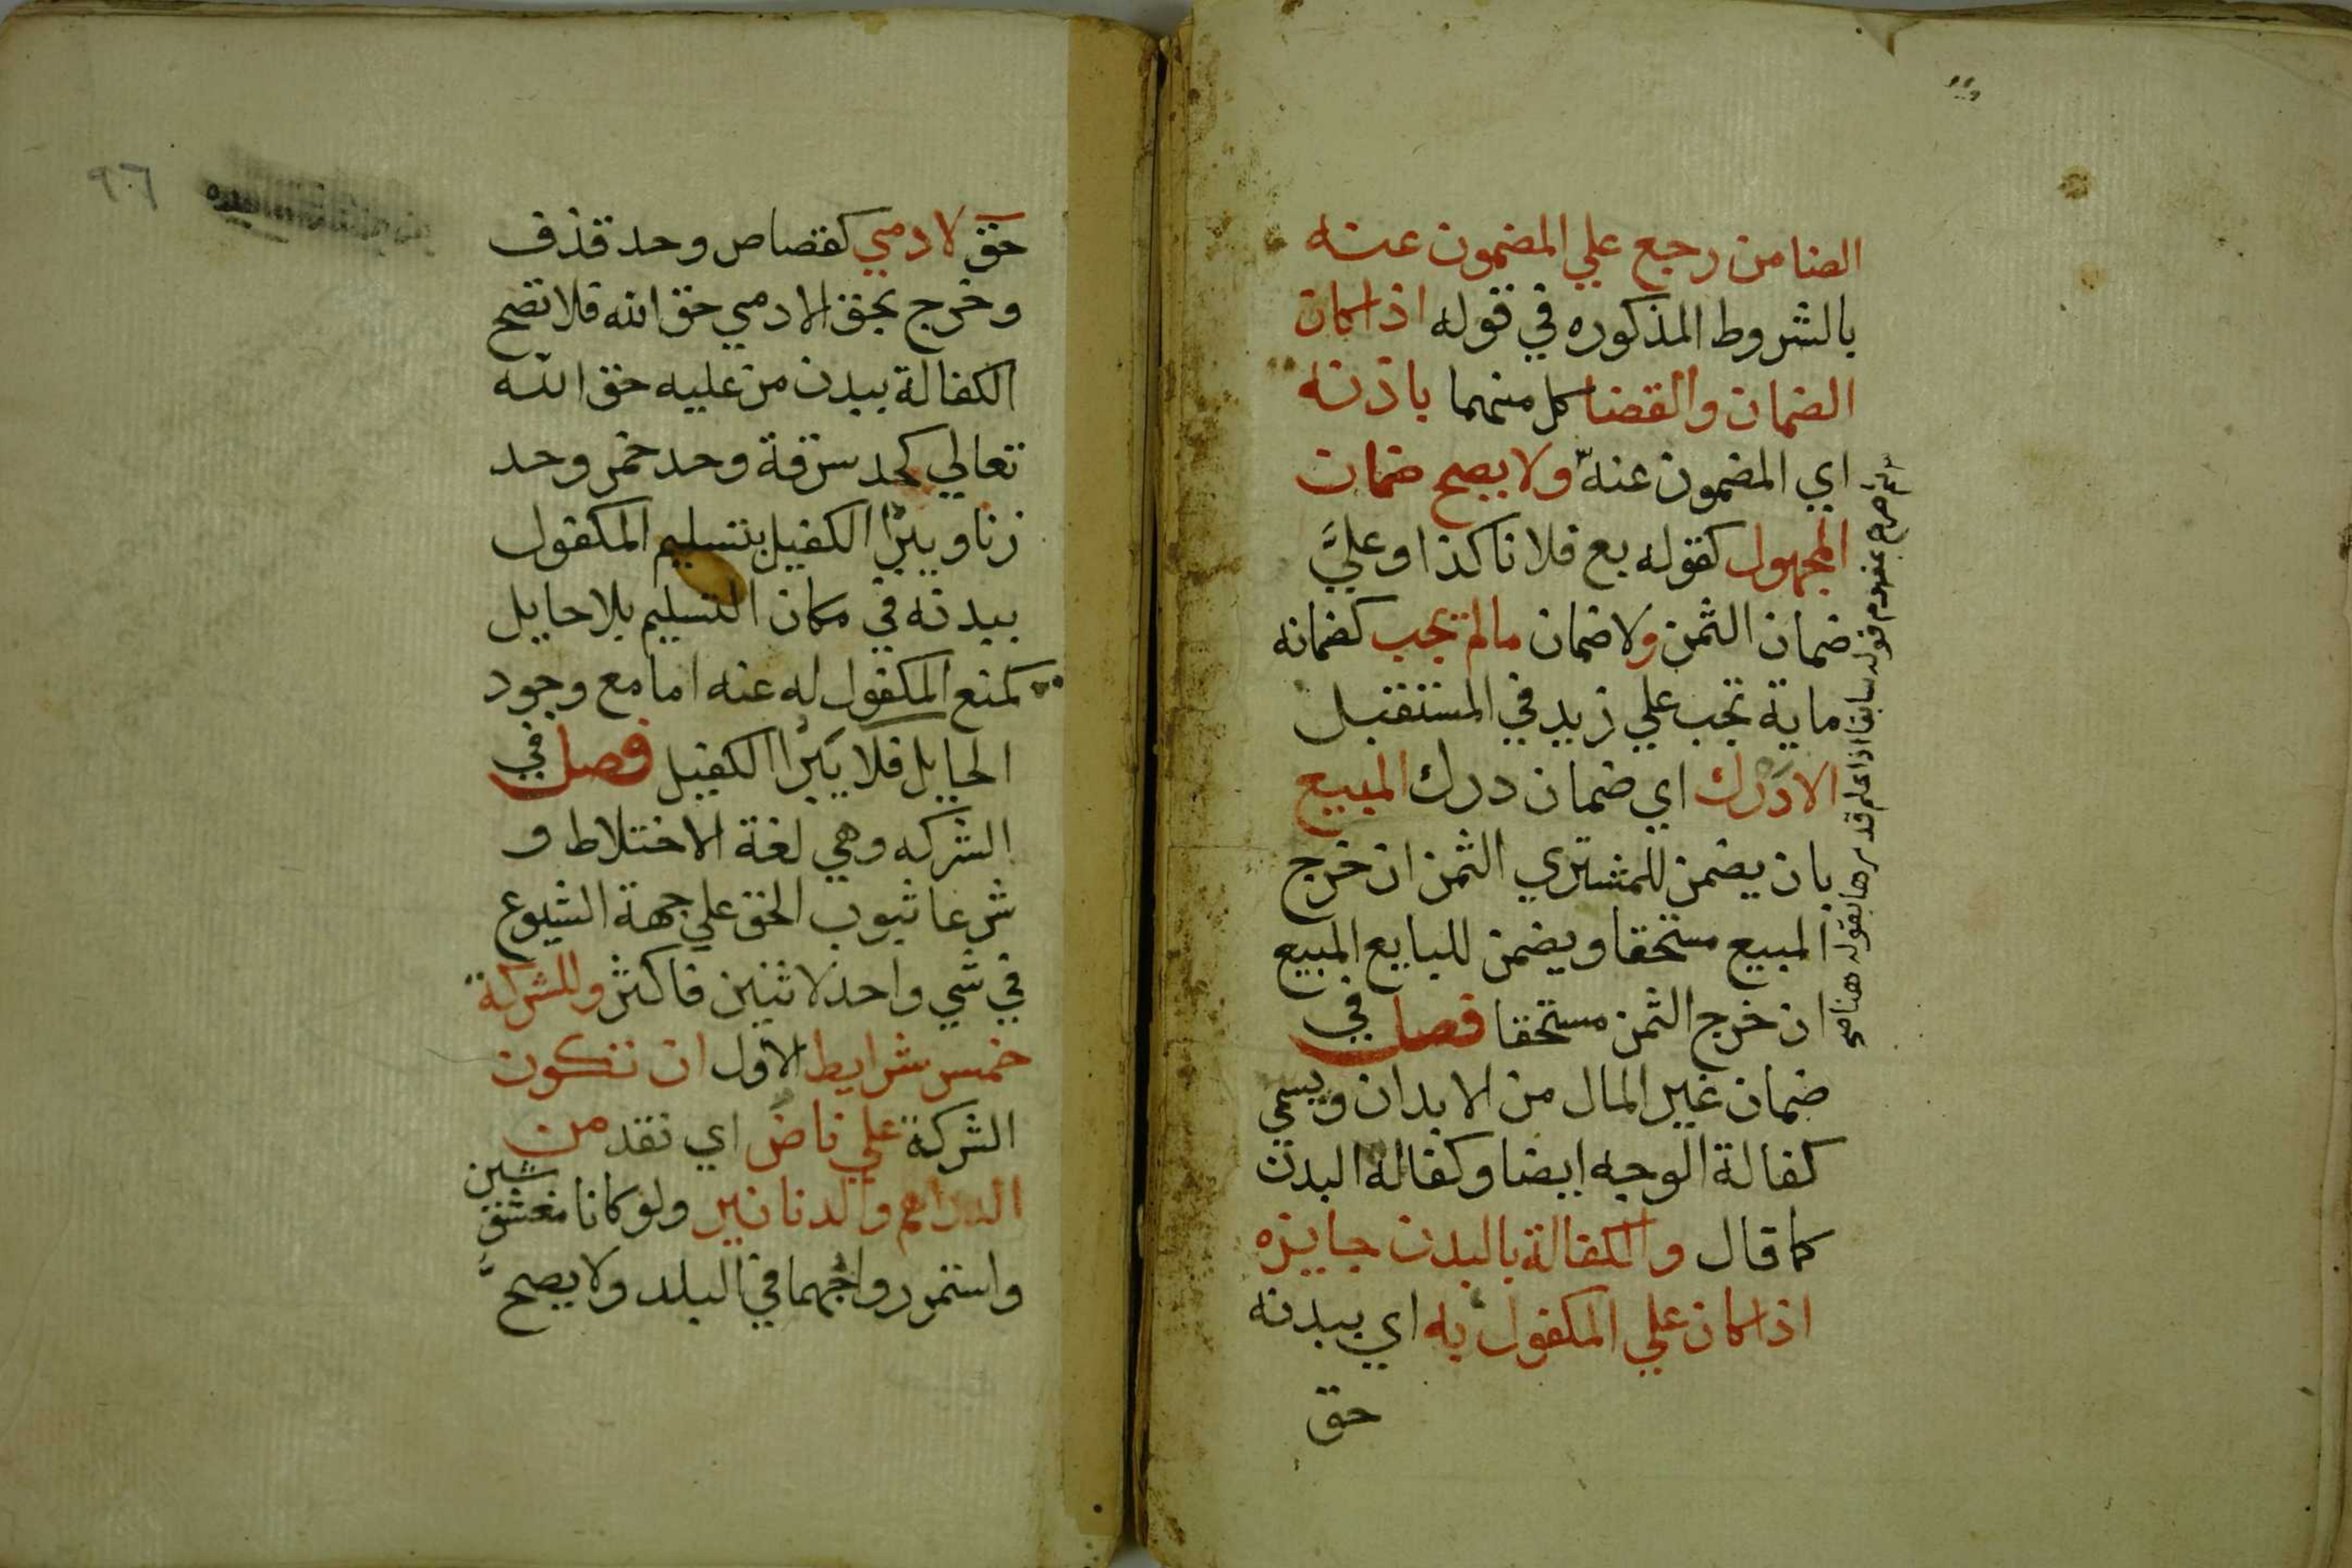 الضامن رجع علي المضمون عنه
بالشروط المذكوره في قوله اذا كان
الضمان والقضا كل منهما باذنه
اي المضمون عنه ولا يصح ضمان
المجهول كقوله بع فلانا كذا وعليَّ
ضمان الثمن ولا ضمان ما لم يجب كضمانه
ماية تجب علي زيد في المستقبل
الا درك اي ضمان درك المبيع
بان يضمن للمشتري الثمن ان خرج
المبيع مستحقا ويضمن للبايع المبيع
ان خرج الثمن مستحقا فصل في
ضمان غير المال من الابدان ويسمي
كفالة الوجه ايضا وكفالة البدن
كما قال والكفالة بالبدن جايزه
اذا كان علي المكفول به اي ببدنه
حق
صرح بمفهوم قوله سابقا اذا علم قدرها بقوله هنا
٩٦
حق لادمي كقصاص وحد قذف
وخرج بحق الادمي حق الله فلا تصح
الكفالة ببدن من عليه حق الله
تعالي كحد سرقة وحد خمر وحد
زنا ويبرا الكفيل بتسليم المكفول
ببدنه في مكان التسليم بلا حايل
كمنع المكفول له عنه اما مع وجود
الحايل فلا يبرا الكفيل فصل في
الشركه وهي لغة الاختلاط و
شرعا ثبوب الحق علي جهة الشيوع
في شي واحد لاثنين فاكثر وللشركة
خمس شرايط الاول ان تكون
الشركة علي ناض اي نقد من
الدراهم والدنانير ولو كانا مغشوشين
واستمر رواجهما في البلد ولا يصح